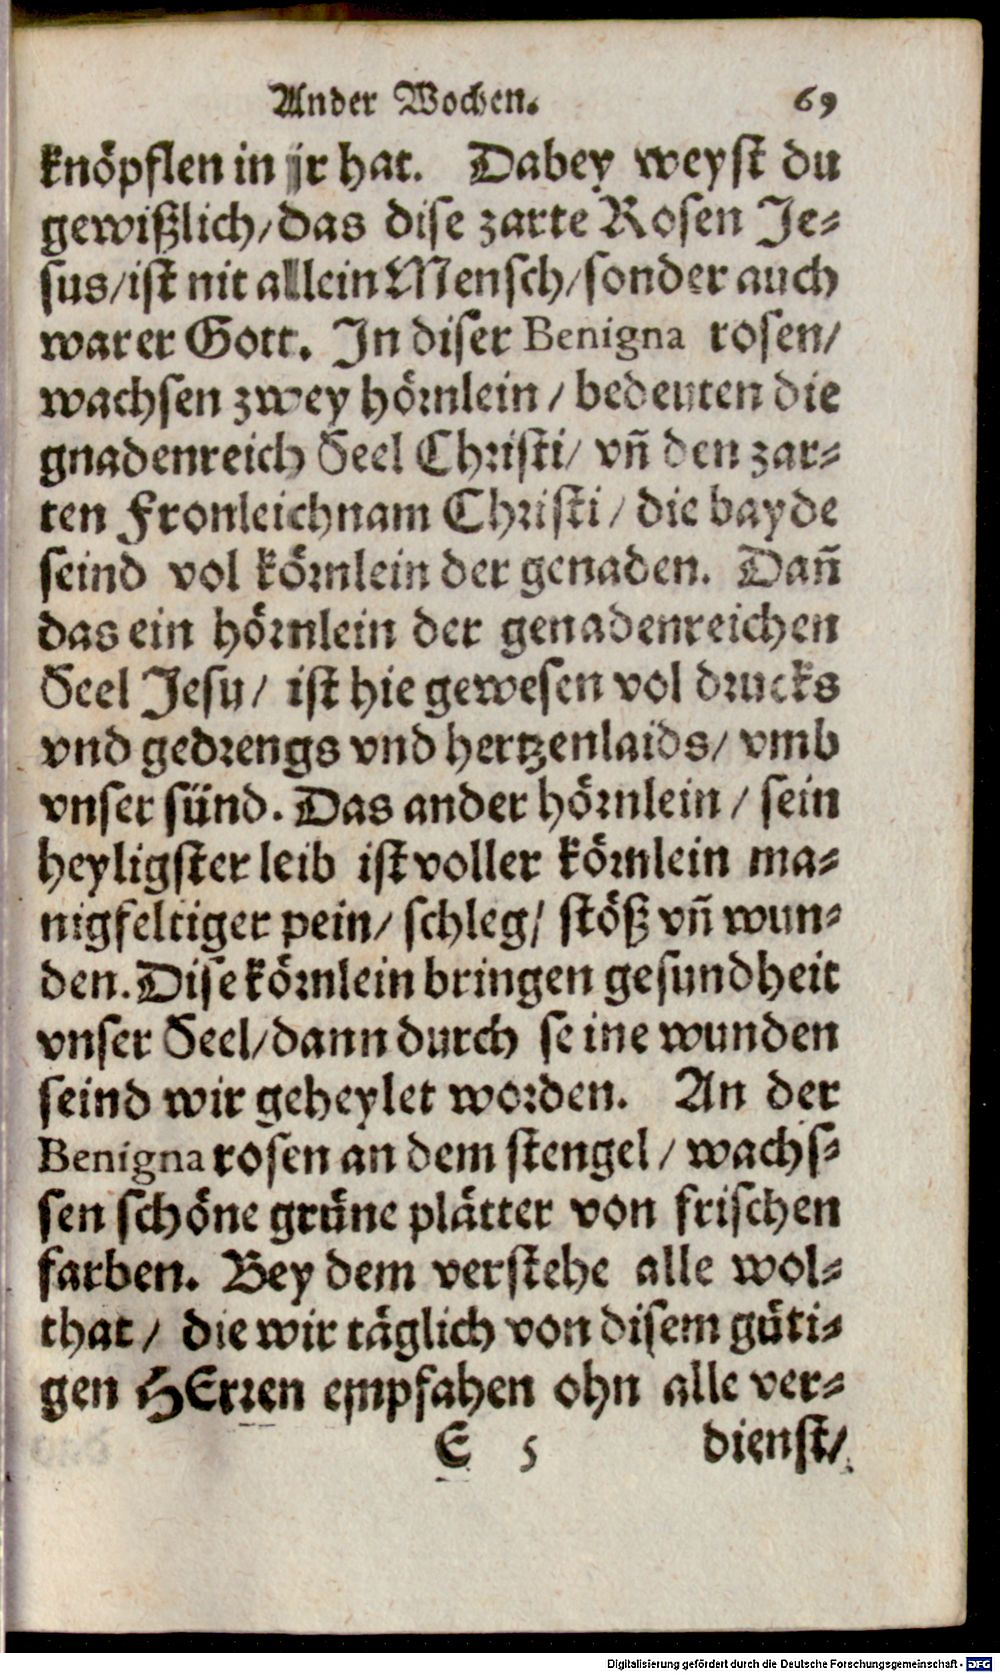 Ander Wochen. 69
knöpflen in jr hat. Dabey weyst du
gewißlich/das dise zarte Rosen Je-
sus/ist nit allein Mensch/sonder auch
warer Gott. In diser Benigna rosen/
wachsen zwey hörnlein / bedeuten die
gnadenreich Seel Christi/ vñ den zar-
ten Fronleichnam Christi / die bayde
seind vol körnlein der genaden. Dañ
das ein hörnlein der genadenreichen
Seel Jesu/ ist hie gewesen vol drucks
vnd gedrengs vnd hertzenlaids/ vmb
vnser sünd. Das ander hörnlein / sein
heyligster leib ist voller körnlein ma-
nigfeltiger pein/ schleg/ stöß vñ wun-
den. Dise körnlein bringen gesundheit
vnser Seel/dann durch seine wunden
seind wir geheylet worden. An der
Benigna rosen an dem stengel / wachs-
sen schöne grüne plätter von frischen
farben. Bey dem verstehe alle wol-
that / die wir täglich von disem güti-
gen HErren empfahen ohn alle ver-
E 5 dienst/
Digitalisierung gefördert durch die Deutsche Forschungsgemeinschaft - DFG